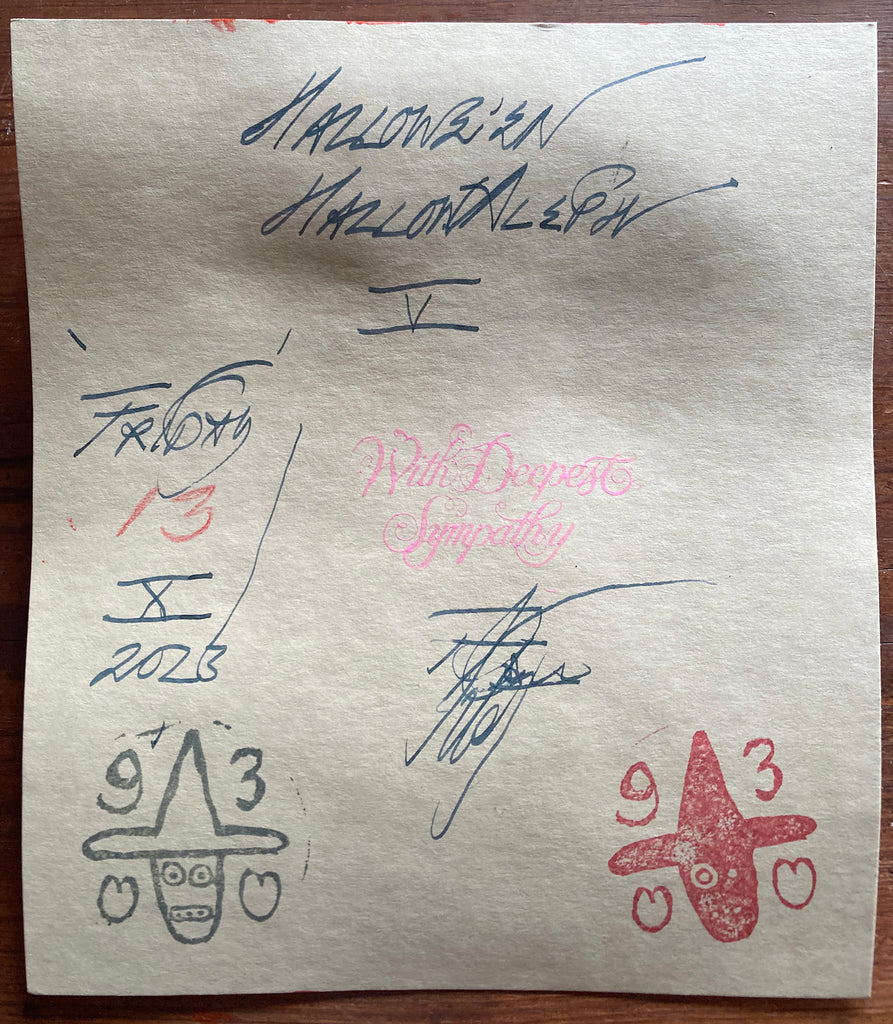 HALLOWE'EN
HALLOWALEPH
V
FRIDAY
13
X
2023
With Deepest
Sympathy
93
93